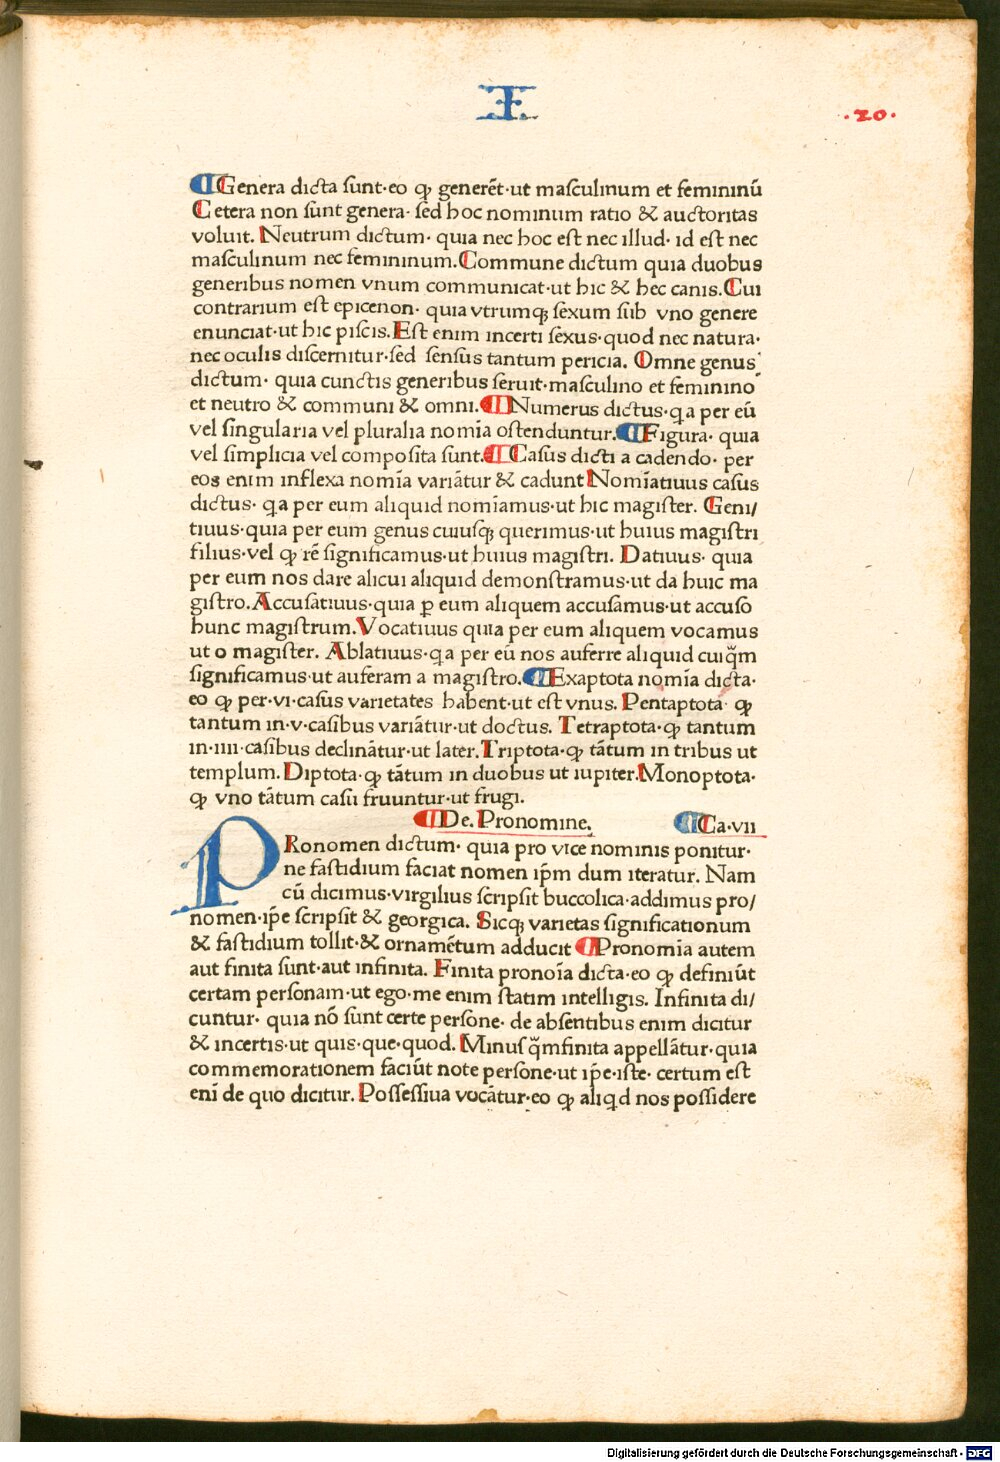 I
·20·
¶Genera dicta sunt·eo ꝙ generēt·ut masculinum et femininū
Cetera non sunt genera· sed hoc nominum ratio & auctoritas
voluit. Neutrum dictum· quia nec hoc est nec illud· id est nec
masculinum nec femininum.Commune dictum quia duobus
generibus nomen vnum communicat·ut hic & hec canis.Cui
contrarium est epicenon· quia vtrumqꝫ sexum sub vno genere
enunciat·ut hic piscis.Est enim incerti sexus·quod nec natura·
nec oculis discernitur·sed sensus tantum pericia. Omne genus
dictum· quia cunctis generibus seruit·masculino et feminino
et neutro & communi & omni.¶Numerus dictus·qa per eū
vel singularia vel pluralia nomīa ostenduntur.¶Figura· quia
vel simplicia vel composita sunt.¶Casus dicti a cadendo· per
eos enim inflexa nomīa variātur & cadunt Nomīatiuus casus
dictus· qa per eum aliquid nomīamus·ut hic magister. Geni/
tiuus·quia per eum genus cuiusqꝫ querimus·ut huius magistri
filius·vel ꝙ rē significamus·ut huius magistri. Datiuus· quia
per eum nos dare alicui aliquid demonstramus·ut da huic ma
gistro.Accusatiuus·quia ꝑ eum aliquem accusamus·ut accuso
hunc magistrum.Vocatiuus quia per eum aliquem vocamus
ut o magister. Ablatiuus·qa per eū nos auferre aliquid cuiq̄m
significamus·ut auferam a magistro.¶Exaptota nomīa dicta·
eo ꝙ per·vi·casus varietates habent·ut est vnus. Pentaptota· ꝙ
tantum in·v·casibus variātur·ut doctus. Tetraptota·ꝙ tantum
in·iiii·casibus declinātur·ut later.Triptota·ꝙ tātum in tribus ut
templum.Diptota·ꝙ tātum in duobus ut iupiter.Monoptota·
ꝙ vno tātum casu fruuntur·ut frugi.
¶De. Pronomine. ¶Ca·vii
PRonomen dictum· quia pro vice nominis ponitur·
ne fastidium faciat nomen ip̄m dum iteratur. Nam
cū dicimus·virgilius scripsit buccolica·addimus pro/
nomen·ip̄e scripsit & georgica. Sicqꝫ varietas significationum
& fastidium tollit·& ornamētum adducit ¶Pronomīa autem
aut finita sunt·aut infinita. Finita pronoīa dicta·eo ꝙ definiūt
certam personam·ut ego·me enim statim intelligis. Infinita di/
cuntur· quia nō sunt certe persone· de absentibus enim dicitur
& incertis·ut quis·que·quod. Minus q̄mfinita appellātur·quia
commemorationem faciūt note persone·ut ip̄e·iste· certum est
enī de quo dicitur. Possessiua vocātur·eo ꝙ aliqd nos possidere
Digitalisierung gefördert durch die Deutsche Forschungsgemeinschaft - DFG